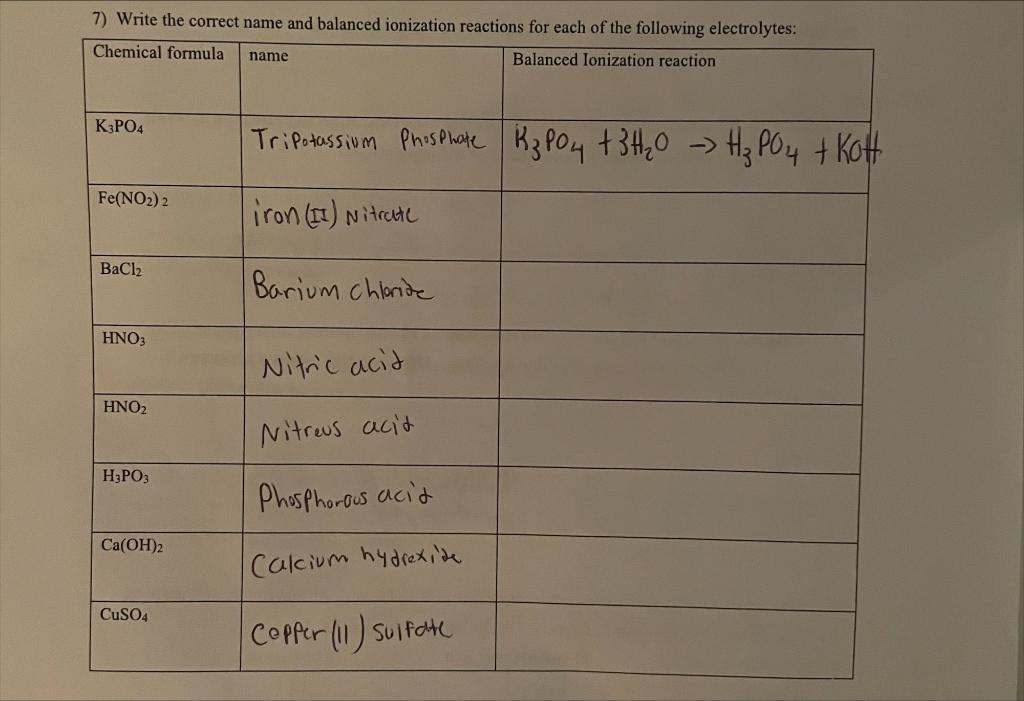 7) Write the correct name and balanced ionization reactions for each of the following electrolytes:
Chemical formula name Balanced Ionization reaction
K₃PO₄ Tripotassium Phosphate K₃PO₄ + 3H₂O → H₃PO₄ + KOH
Fe(NO₂)₂ iron (II) Nitrate
BaCl₂ Barium chloride
HNO₃ Nitric acid
HNO₂ Nitreus acid
H₃PO₃ Phosphorous acid
Ca(OH)₂ Calcium hydroxide
CuSO₄ Copper (II) sulfate